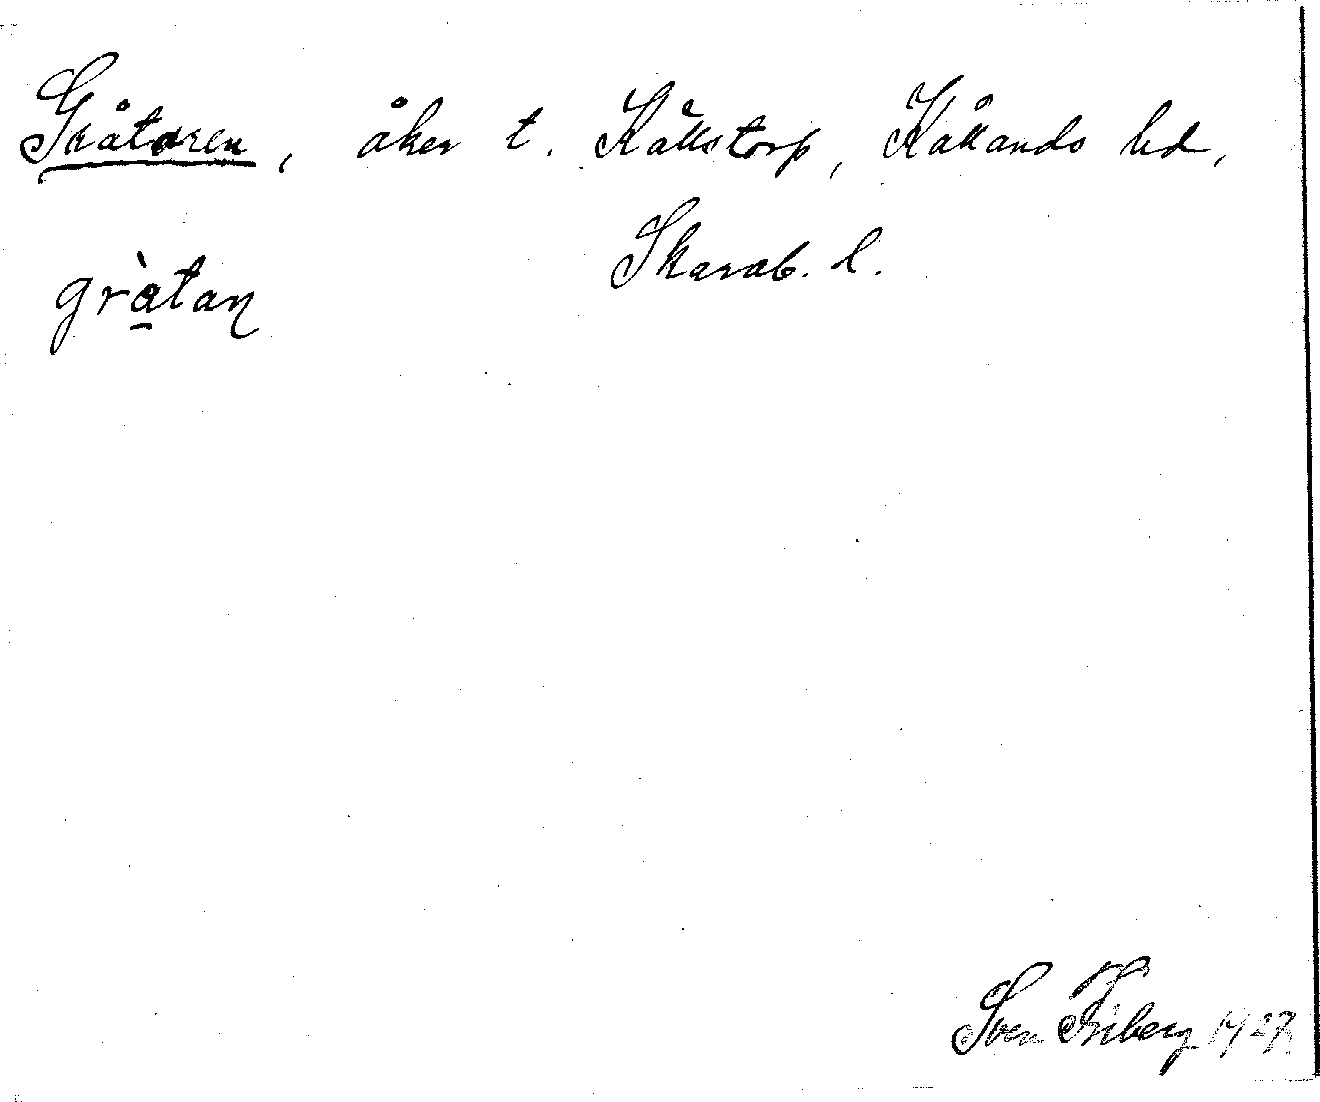 Gråtaren, åker t. Kållstorp, Kållands hd,
Skarab. l.
gràtaɳ
Sven Friberg 1927.